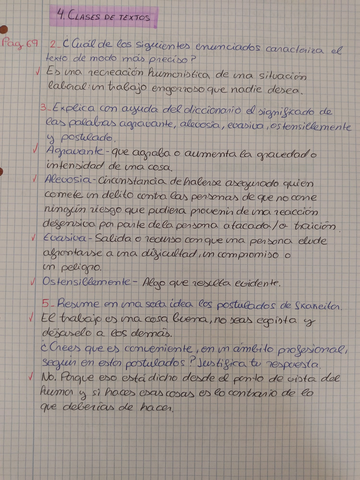 4. CLASES DE TEXTOS
Pag 69 2. ¿Cuál de los siguientes enunciados caracteriza el
texto de modo más preciso?
Es una recreación humorística de una situación
laboral: un trabajo engorroso que nadie desea.
3. Explica con ayuda del diccionario el significado de
las palabras agravante, alevosía, evasiva, ostensiblemente
y postulado.
Agravante - que agraba o aumenta la gravedad o
intensidad de una cosa.
Alevosía - Circunstancia de haberse asegurado quien
comete un delito contra las personas de que no corre
ningún riesgo que pudiera provenir de una reacción
defensiva por parte de la persona atacada / o traición.
Evasiva - Salida o recurso con que una persona elude
afrontarse a una dificultad, un compromiso o
un peligro.
Ostensiblemente - Algo que resulta evidente.
5. Resume en una sola idea los postulados de
El trabajo es una cosa buena, no seas egoista y
déjaselo a los demás.
¿Crees que es conveniente, en un ámbito profesional,
seguir estos postulados? Justifica tu respuesta
No, Porque eso está dicho desde el punto de vista del
humor y si haces esas cosas es lo contrario de lo
que deberías de hacer.